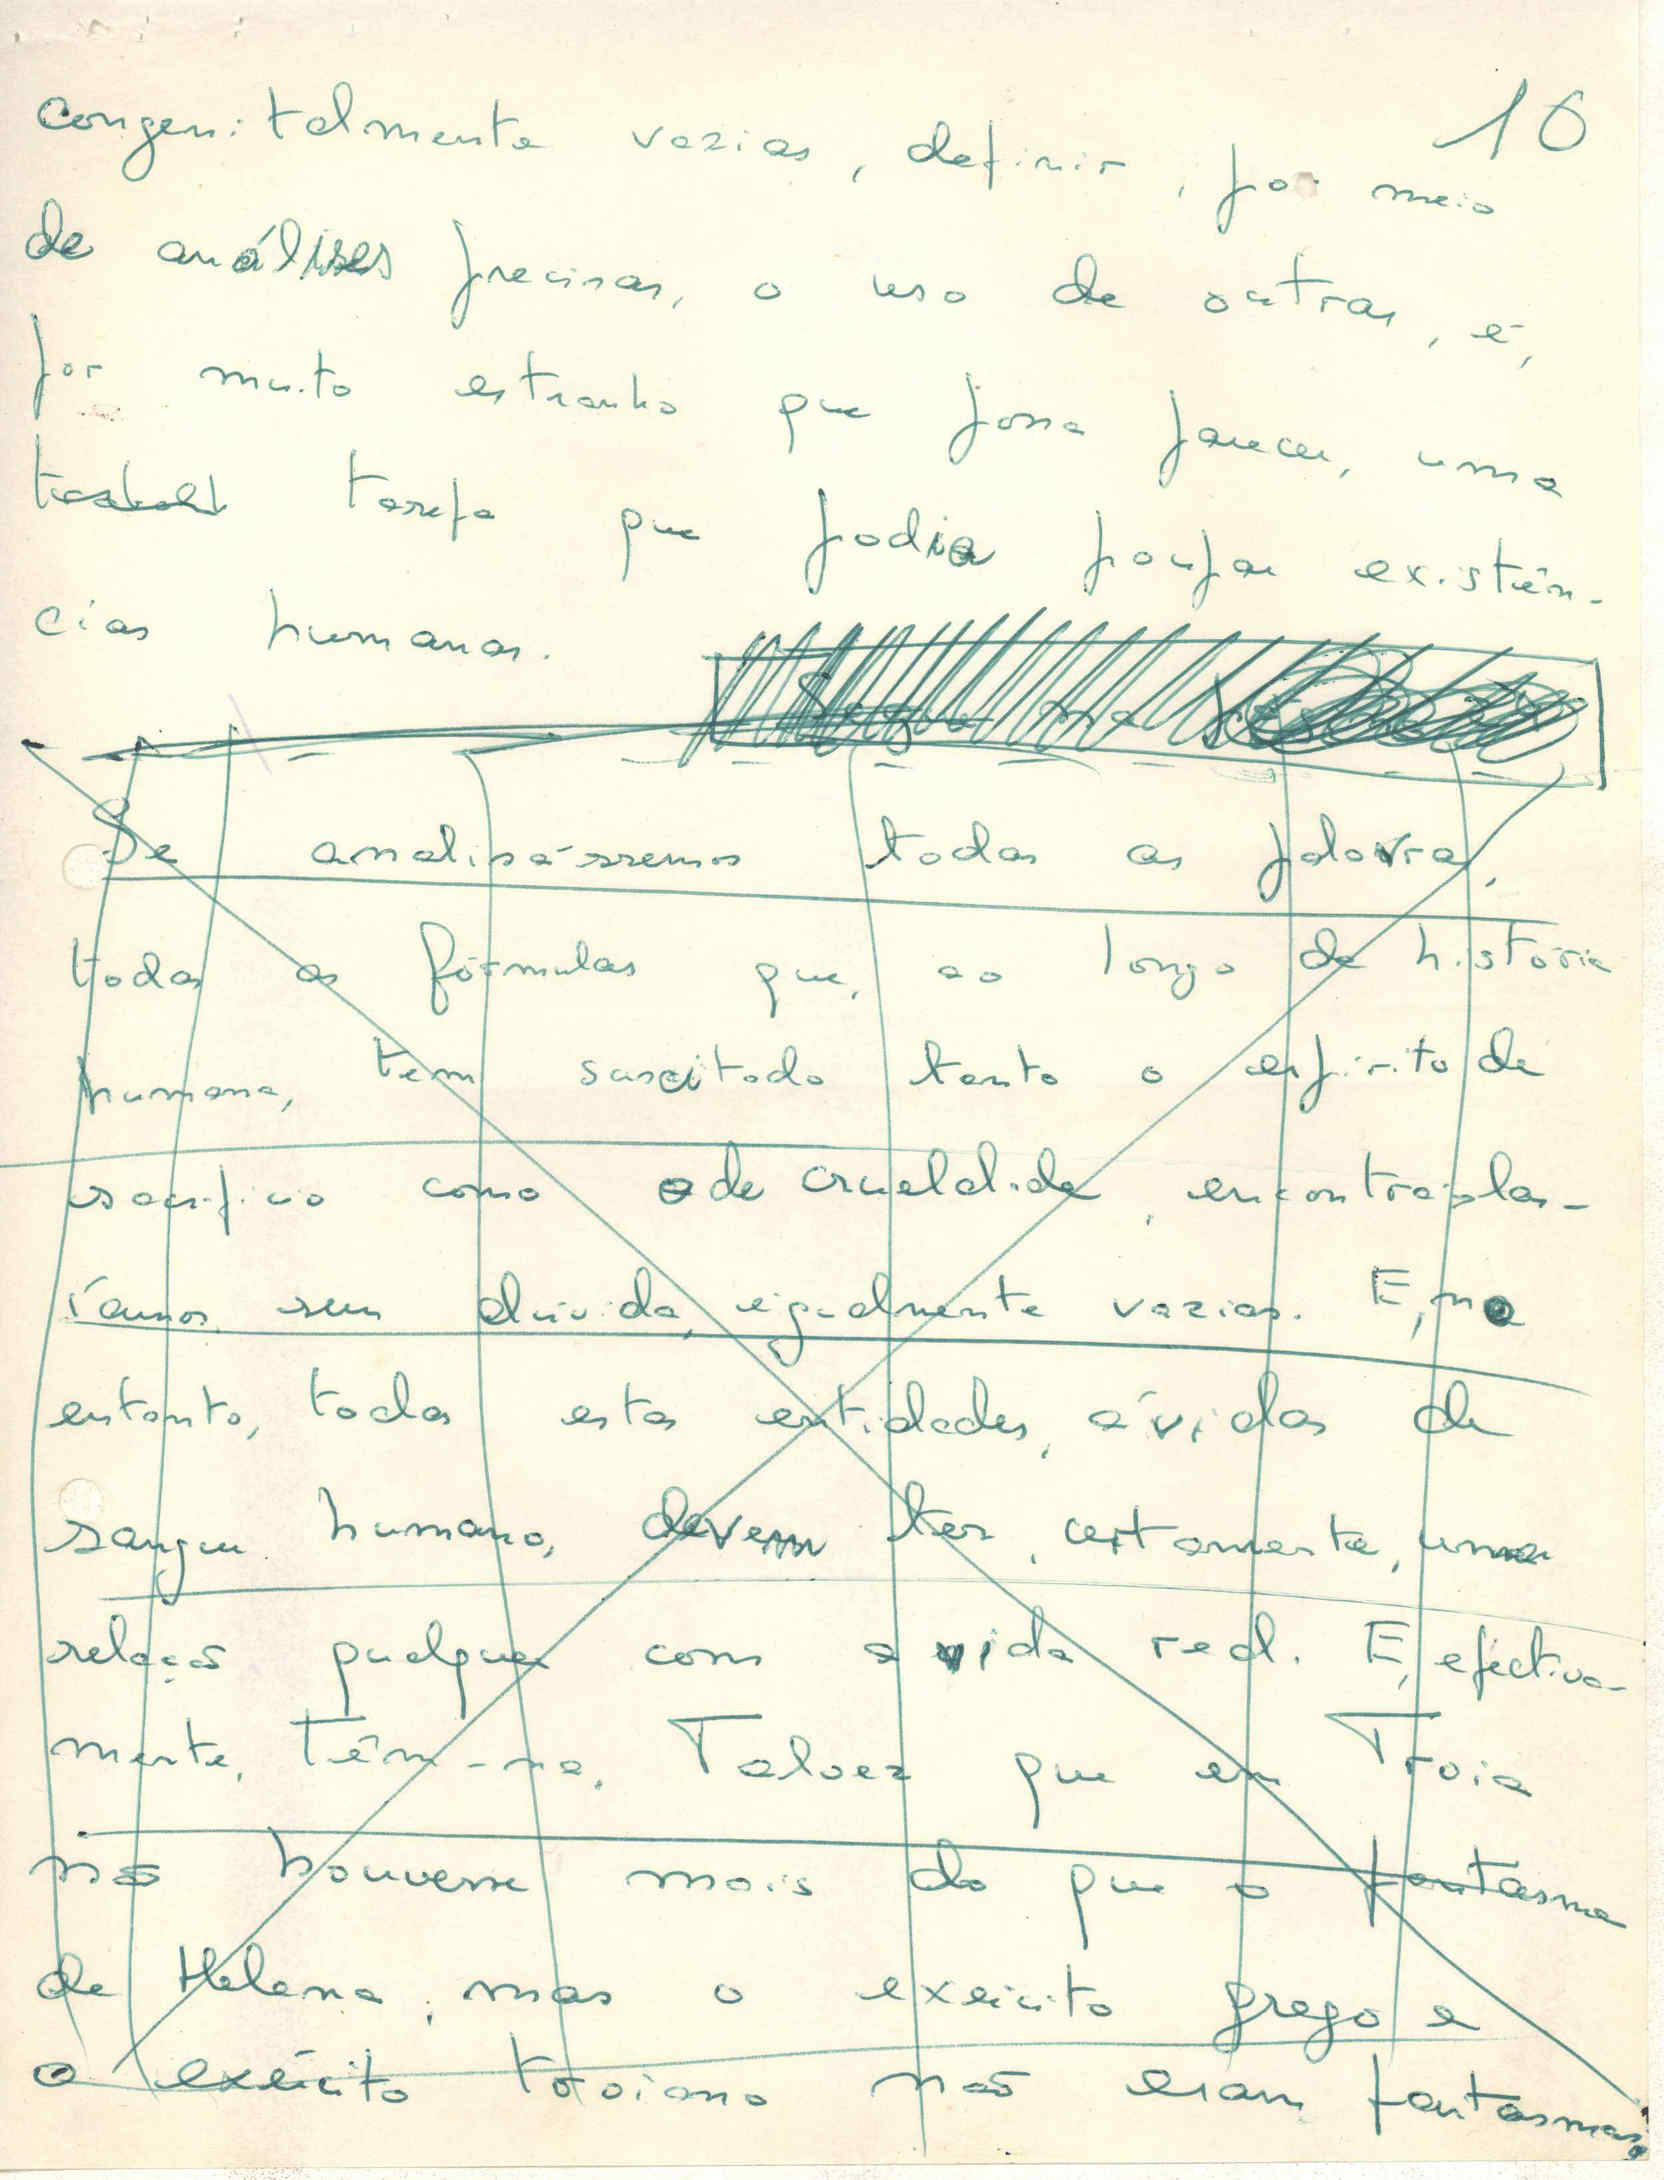 16
congenitalmente vazias, definir, por meio
de análises precisas, o uso de outras, é,
por muito estranho que possa parecer, uma
tarefa que podia poupar existên-
cias humanas.
Segue na
Se analisássemos todas as palavras,
todas as fórmulas que, ao longo da história
humana, têm suscitado tanto o espírito de
sacrifício como o de crueldade, encontrá-las-
íamos, sem dúvida, igualmente vazias. E, no
entanto, todas estas entidades, ávidas de
sangue humano, devem ter, certamente, uma
relação qualquer com a vida real. E, efectiva-
mente, têm-na. Talvez que em Troia
não houvesse mais do que o fantasma
de Helena, mas o exército grego e
o exército troiano não eram fantasmas,